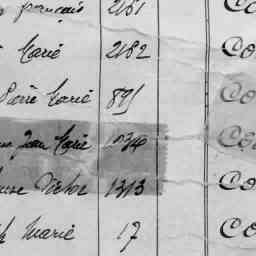 français 2181 Co
Marie 2182 Co
Pierre Marie 895 Co
Jean Marie 1034 Co
Victor 1313 Co
Marie 17 Co